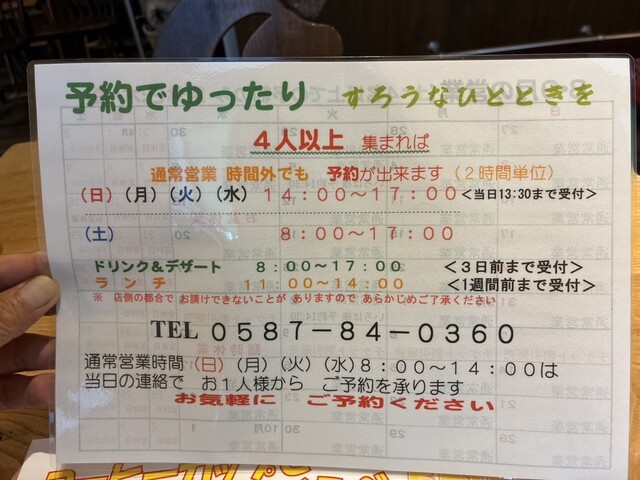 予約でゆったり すろうなひとときを
4人以上 集まれば
通常営業 時間外でも 予約が出来ます(2時間単位)
(日)(月)(火)(水) 14:00～17:00<当日13:30まで受付>
(土) 8:00～17:00
ドリンク&デザート 8:00～17:00 <3日前まで受付>
ランチ 11:00～14:00 <1週間前まで受付>
※ 店側の都合で お請けできないことが ありますので あらかじめご了承ください
TEL 0587-84-0360
通常営業時間 (日)(月)(火)(水)8:00～14:00は
当日の連絡で お1人様から ご予約を承ります
お気軽に ご予約ください